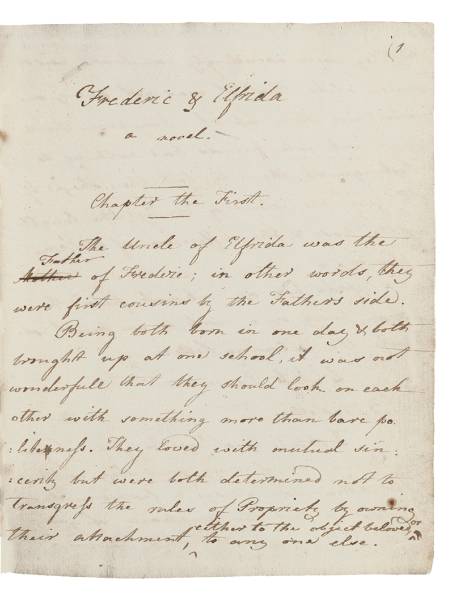 (1
Frederic & Elfrida
a novel.
Chapter the First.
The Uncle of Elfrida was the
Father
Mother of Frederic; in other words, they
were first cousins by the Father's side.
Being both born in one day & both
brought up at one school, it was not
wonderfull that they should look on each
other with something more than bare po
:liteness. They loved with mutual sin:
:cerity but were both determined not to
transgress the rules of Propriety by owning
either to the object beloved, or
their attachment, to any one else.